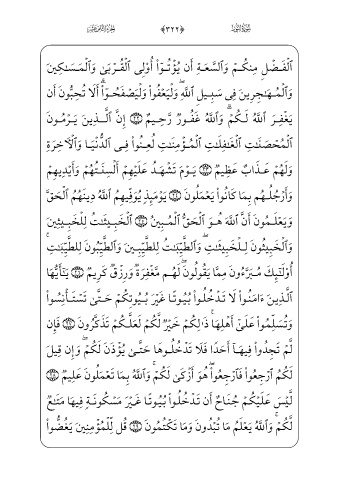 سُورَةُ النُّورِ ﴿٣٢٢﴾ الجُزْءُ الثَّامِنَ عَشَرَ
ٱلْفَضْلِ مِنكُمْ وَٱلسَّعَةِ أَن يُؤْتُوٓا۟ أُو۟لِى ٱلْقُرْبَىٰ وَٱلْمَسَـٰكِينَ
وَٱلْمُهَـٰجِرِينَ فِى سَبِيلِ ٱللَّهِ ۖ وَلْيَعْفُوا۟ وَلْيَصْفَحُوٓا۟ ۗ أَلَا تُحِبُّونَ أَن
يَغْفِرَ ٱللَّهُ لَكُمْ ۗ وَٱللَّهُ غَفُورٌ رَّحِيمٌ ﴿٢٢﴾ إِنَّ ٱلَّذِينَ يَرْمُونَ
ٱلْمُحْصَنَـٰتِ ٱلْغَـٰفِلَـٰتِ ٱلْمُؤْمِنَـٰتِ لُعِنُوا۟ فِى ٱلدُّنْيَا وَٱلْـَٔاخِرَةِ
وَلَهُمْ عَذَابٌ عَظِيمٌ ﴿٢٣﴾ يَوْمَ تَشْهَدُ عَلَيْهِمْ أَلْسِنَتُهُمْ وَأَيْدِيهِمْ
وَأَرْجُلُهُم بِمَا كَانُوا۟ يَعْمَلُونَ ﴿٢٤﴾ يَوْمَئِذٍ يُوَفِّيهِمُ ٱللَّهُ دِينَهُمُ ٱلْحَقَّ
وَيَعْلَمُونَ أَنَّ ٱللَّهَ هُوَ ٱلْحَقُّ ٱلْمُبِينُ ﴿٢٥﴾ ٱلْخَبِيثَـٰتُ لِلْخَبِيثِينَ
وَٱلْخَبِيثُونَ لِلْخَبِيثَـٰتِ ۖ وَٱلطَّيِّبَـٰتُ لِلطَّيِّبِينَ وَٱلطَّيِّبُونَ لِلطَّيِّبَـٰتِ ۚ
أُو۟لَـٰٓئِكَ مُبَرَّءُونَ مِمَّا يَقُولُونَ ۖ لَهُم مَّغْفِرَةٌ وَرِزْقٌ كَرِيمٌ ﴿٢٦﴾ يَـٰٓأَيُّهَا
ٱلَّذِينَ ءَامَنُوا۟ لَا تَدْخُلُوا۟ بُيُوتًا غَيْرَ بُيُوتِكُمْ حَتَّىٰ تَسْتَأْنِسُوا۟
وَتُسَلِّمُوا۟ عَلَىٰٓ أَهْلِهَا ۚ ذَٰلِكُمْ خَيْرٌ لَّكُمْ لَعَلَّكُمْ تَذَكَّرُونَ ﴿٢٧﴾ فَإِن
لَّمْ تَجِدُوا۟ فِيهَآ أَحَدًا فَلَا تَدْخُلُوهَا حَتَّىٰ يُؤْذَنَ لَكُمْ ۖ وَإِن قِيلَ
لَكُمُ ٱرْجِعُوا۟ فَٱرْجِعُوا۟ ۖ هُوَ أَزْكَىٰ لَكُمْ ۚ وَٱللَّهُ بِمَا تَعْمَلُونَ عَلِيمٌ ﴿٢٨﴾
لَّيْسَ عَلَيْكُمْ جُنَاحٌ أَن تَدْخُلُوا۟ بُيُوتًا غَيْرَ مَسْكُونَةٍ فِيهَا مَتَـٰعٌ
لَّكُمْ ۚ وَٱللَّهُ يَعْلَمُ مَا تُبْدُونَ وَمَا تَكْتُمُونَ ﴿٢٩﴾ قُل لِّلْمُؤْمِنِينَ يَغُضُّوا۟